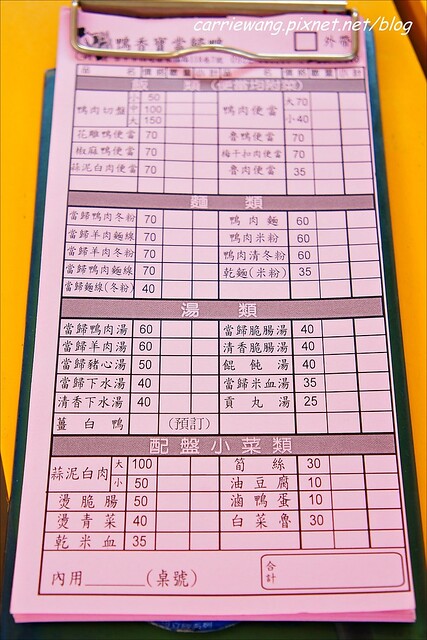 carriewang.pixnet.net/blog
鴨香寶當歸鴨 外帶
品名 價格 數量 小計 品名 價格 數量 小計
飯類
鴨肉切盤 小 50 中 100 大 150 鴨肉便當 大70 小40
花雕鴨便當 70 魯鴨便當 70
椒麻鴨便當 70 梅干扣肉便當 70
蒜泥白肉便當 70 魯肉便當 35
麵類
當歸鴨肉冬粉 70 鴨肉麵 60
當歸羊肉麵線 70 鴨肉米粉 60
當歸羊肉冬粉 70 鴨肉清冬粉 60
當歸鴨肉麵線 70 乾麵(米粉) 35
當歸麵線(冬粉) 40
湯類
當歸鴨肉湯 60 當歸脆腸湯 40
當歸羊肉湯 60 清香脆腸湯 40
當歸豬心湯 50 餛飩湯 40
當歸下水湯 40 當歸米血湯 35
清香下水湯 40 貢丸湯 25
薑白鴨 (預訂)
配盤小菜類
蒜泥白肉 大 100 小 50 筍絲 30
油豆腐 10
燙脆腸 50 滷鴨蛋 10
燙青菜 40 白菜魯 30
乾米血 35
內用______(桌號) 合計